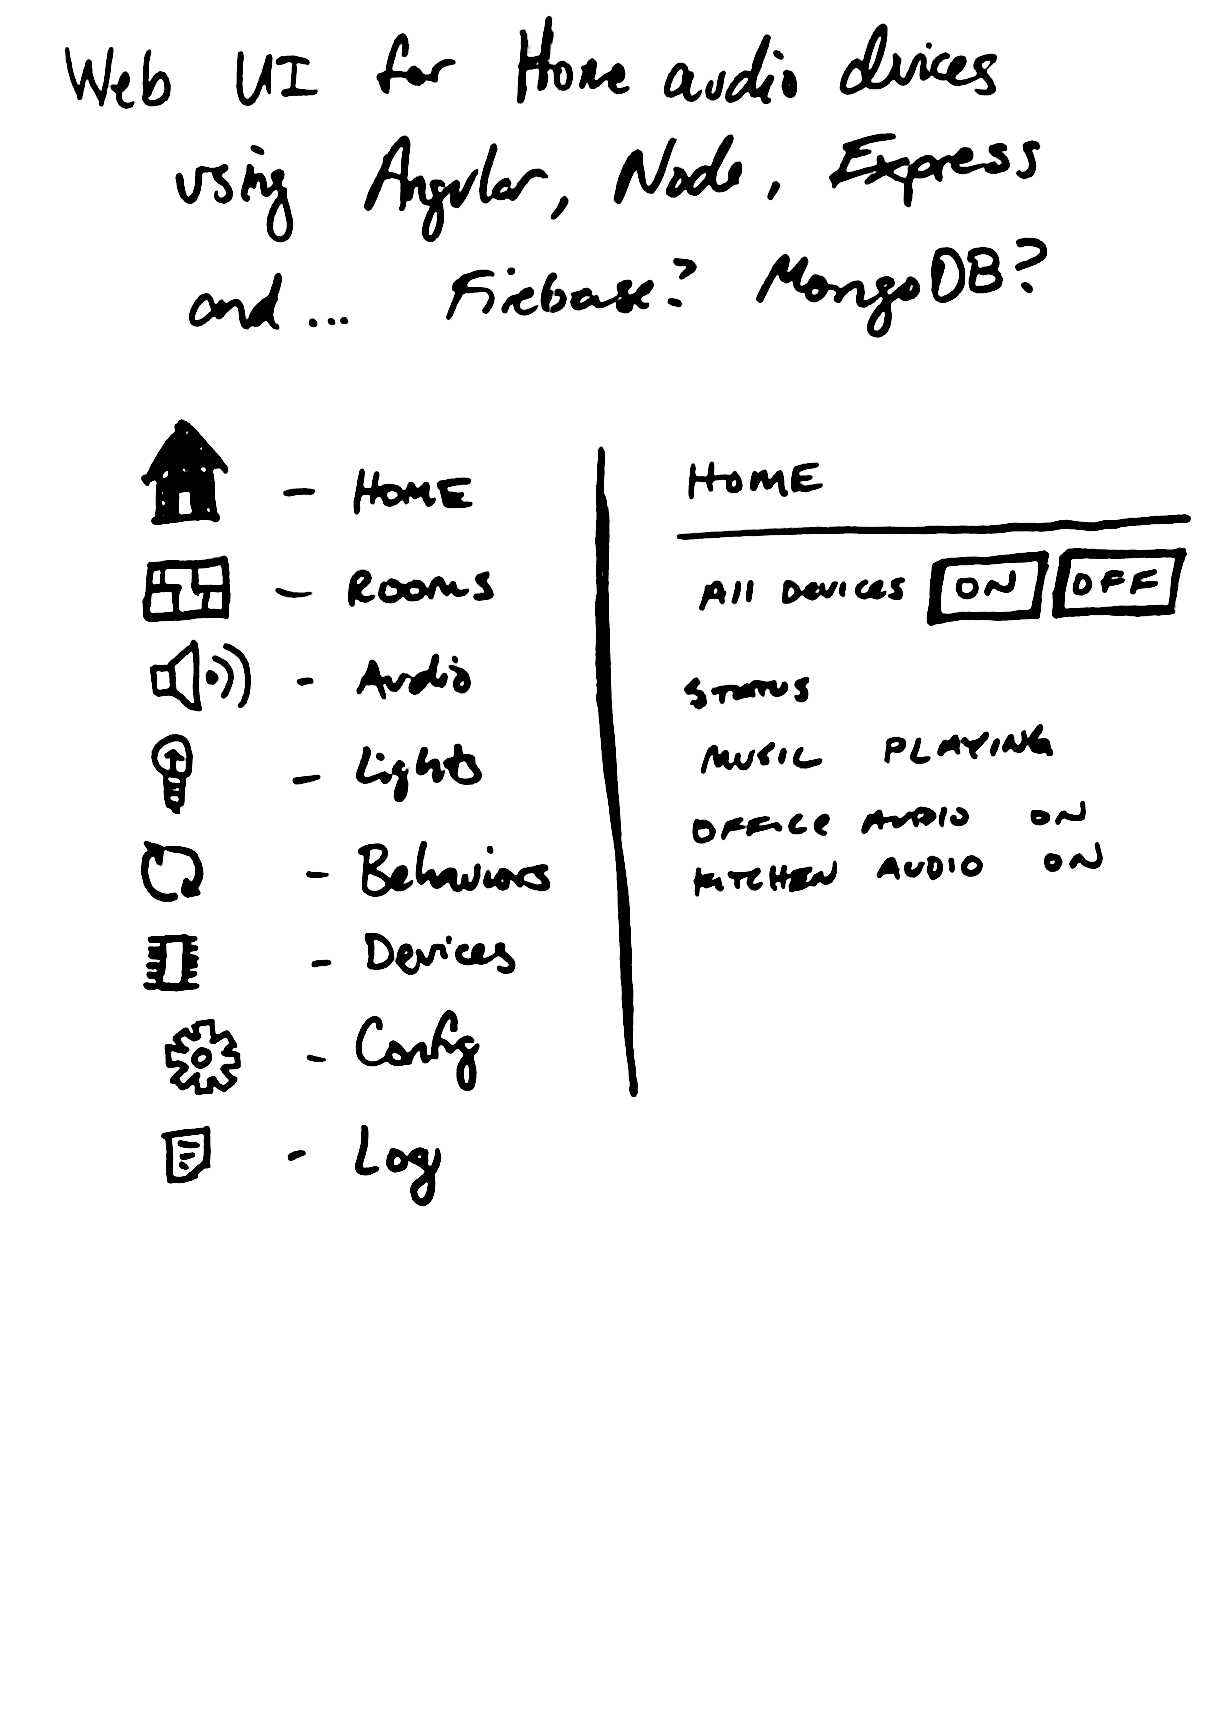 Web UI for Home audio devices
using Angular, Node, Express
and... Firebase? MongoDB?
- HOME
- Rooms
- Audio
- Lights
- Behaviors
- Devices
- Config
- Log
HOME
All Devices ON OFF
STATUS
MUSIC PLAYING
OFFICE AUDIO ON
KITCHEN AUDIO ON